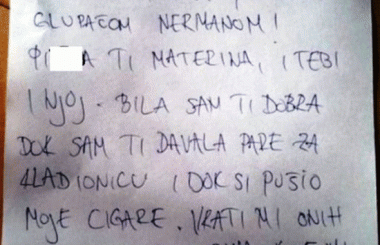 GLUPAČOM NERMANOM!
A TI MATERINA, I TEBI
I NJOJ. BILA SAM TI DOBRA
DOK SAM TI DAVALA PARE ZA
KLADIONICU I DOK SI PUŠIO
MOJE CIGARE. VRATI MI ONIH